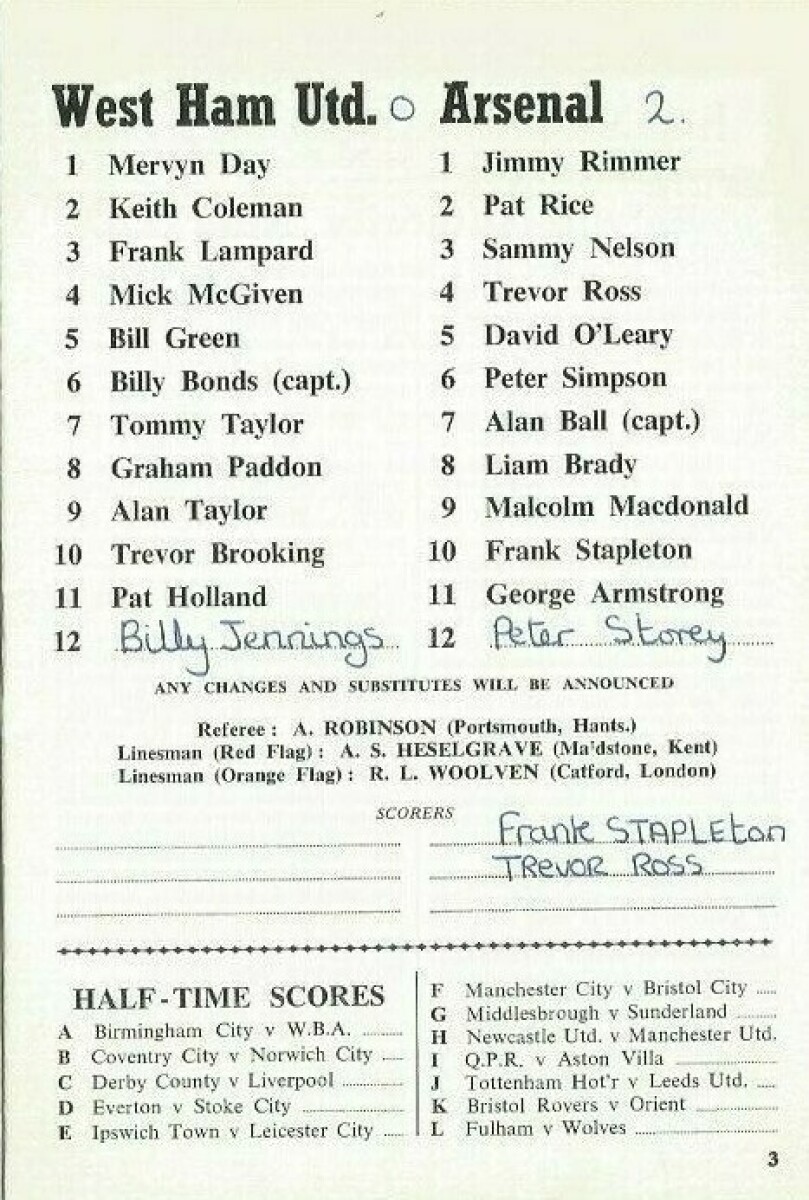 West Ham Utd. 0 Arsenal 2.
1 Mervyn Day
2 Keith Coleman
3 Frank Lampard
4 Mick McGiven
5 Bill Green
6 Billy Bonds (capt.)
7 Tommy Taylor
8 Graham Paddon
9 Alan Taylor
10 Trevor Brooking
11 Pat Holland
12 Billy Jennings
1 Jimmy Rimmer
2 Pat Rice
3 Sammy Nelson
4 Trevor Ross
5 David O'Leary
6 Peter Simpson
7 Alan Ball (capt.)
8 Liam Brady
9 Malcolm Macdonald
10 Frank Stapleton
11 George Armstrong
12 Peter Storey
ANY CHANGES AND SUBSTITUTES WILL BE ANNOUNCED
Referee : A. ROBINSON (Portsmouth, Hants.)
Linesman (Red Flag) : A. S. HESELGRAVE (Ma'dstone, Kent)
Linesman (Orange Flag) : R. L. WOOLVEN (Catford, London)
SCORERS
Frank STAPLETon
TREVOR ROSS
HALF-TIME SCORES
A Birmingham City v W.B.A. ..........
B Coventry City v Norwich City .....
C Derby County v Liverpool ...............
D Everton v Stoke City .........................
E Ipswich Town v Leicester City .....
F Manchester City v Bristol City .....
G Middlesbrough v Sunderland ..........
H Newcastle Utd. v Manchester Utd.
I Q.P.R. v Aston Villa .........................
J Tottenham Hot'r v Leeds Utd. .....
K Bristol Rovers v Orient ....................
L Fulham v Wolves ...................................
3